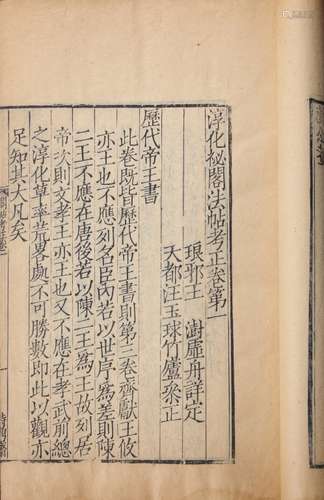 淳化秘閣法帖考正卷第一
琅邪王　澍虛舟詳定
天都汪玉球竹廬參正
歷代帝王書
此卷既皆歷代帝王書則第三卷齊獻王攸
亦王也不應列名臣內若以世序為差則陳
二王不應在唐後若以陳二王為王故列居
帝次則文孝王亦王也又不應在孝武前總
之淳化草率昔畧處不可勝數即此以觀亦
足知其大凡矣